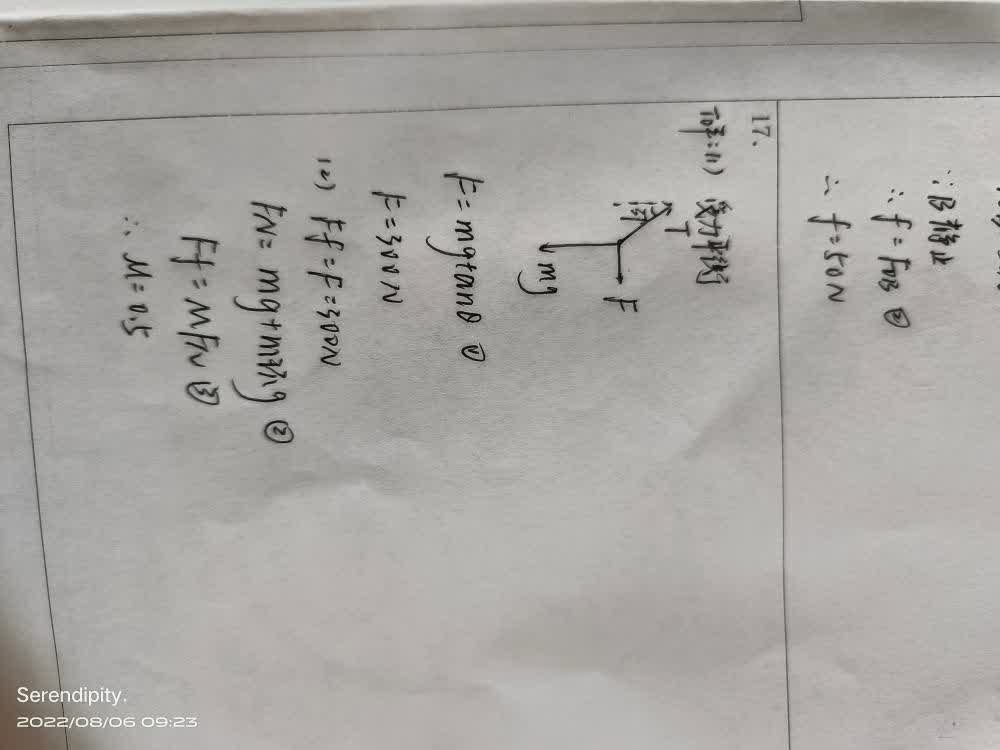 ∵B静止
∴f=FAB ②
∴ f=50N
17.
(1) 受力平衡
37°
T
F
mg
F=mgtanθ ①
F=300N
(2) Ff=F=300N
FN=mg+m环g ②
Ff=μFN ③
∴ μ=0.5
Serendipity.
2022/08/06 09:23